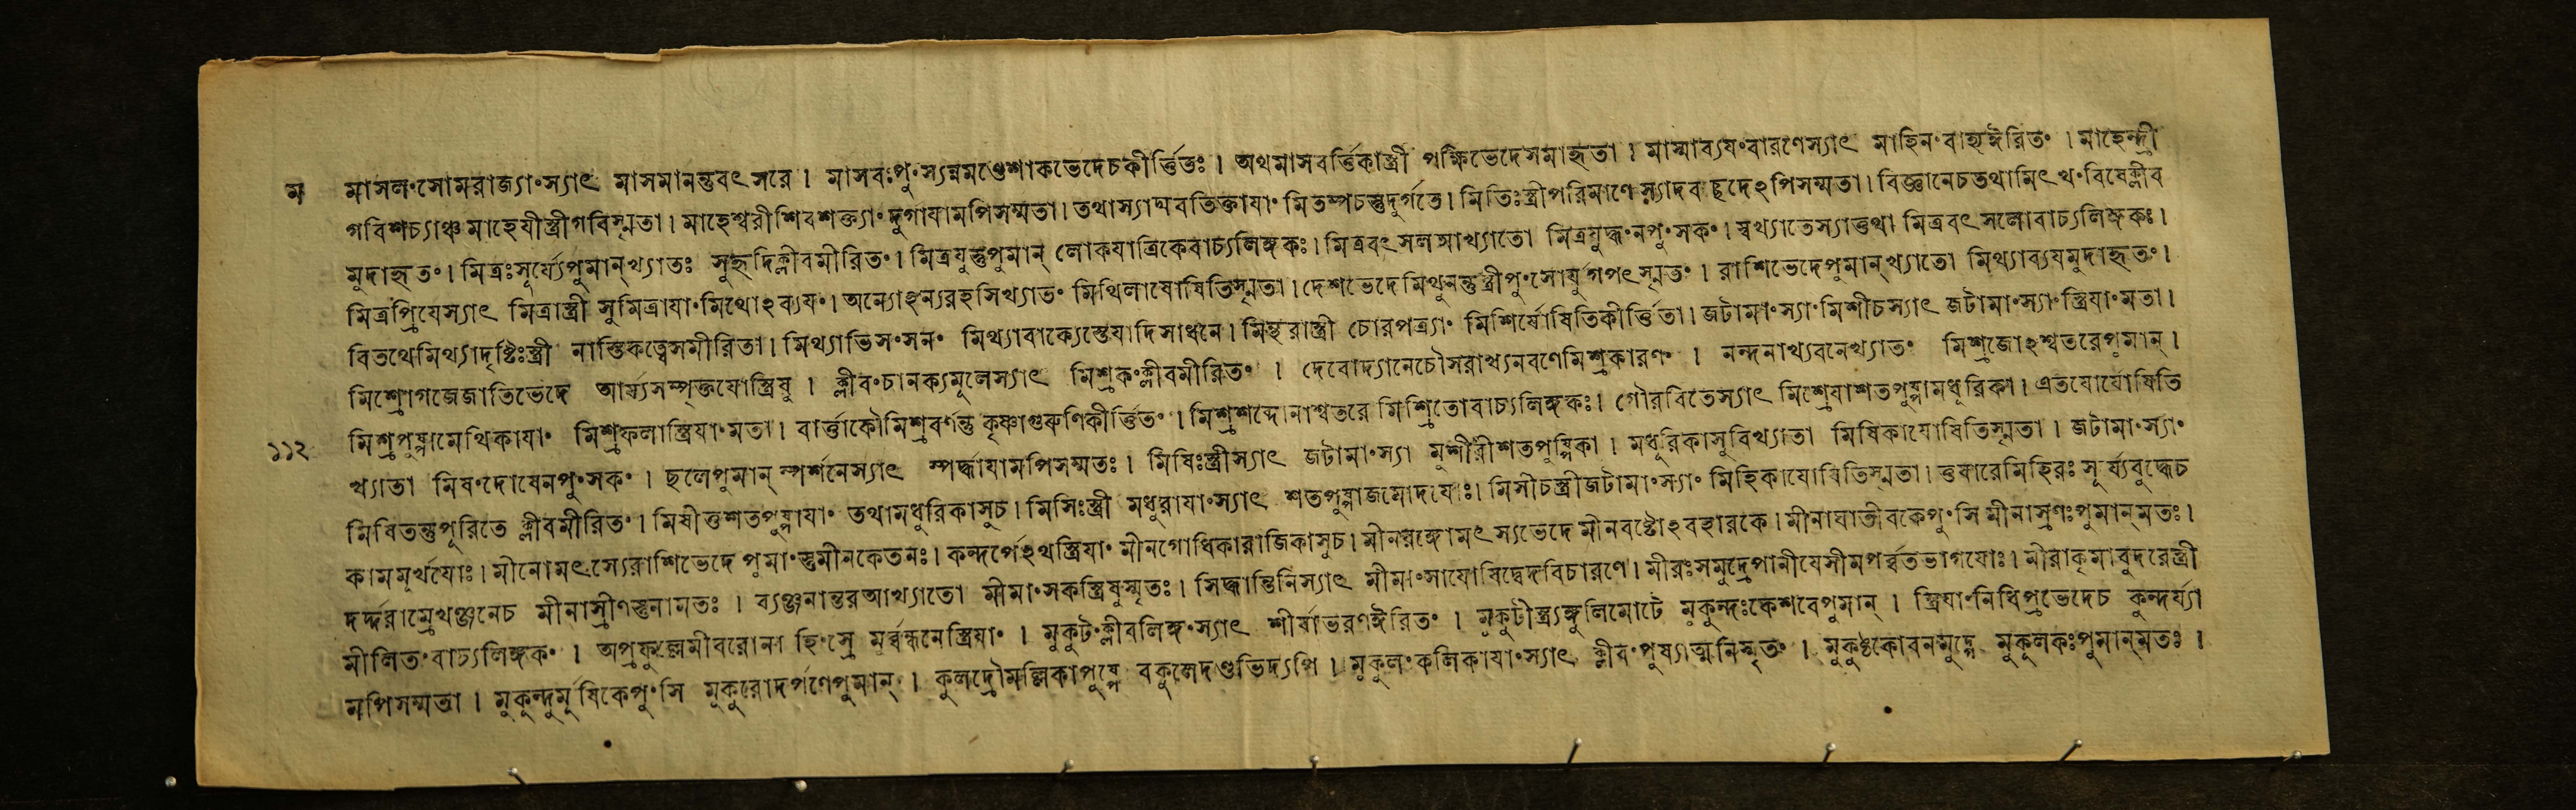 ম মাসল॰সোমরাজ্যা॰স্যাৎ মাসমানন্তুবৎসরে । মাসবঃপু॰স্যন্নমণ্ডেশাকভেদেচকীর্ত্তিতঃ । অথমাসবর্ত্তিকাস্ত্রী পক্ষিভেদেসমাহৃতা । মাস্মাব্যয॰বারণেস্যাৎ মাহিন॰বাহ্যঈরিত॰ । মাহেন্দ্রী
গবিশচ্যাঞ্চমাহেযীস্ত্রীগবিস্মৃতা । মাহেশ্বরীশিবশক্ত্যা॰দুর্গাযামপিসম্মতা । তথাস্যাদ্যবতিক্তাযা॰ মিতম্পচস্তুদুর্গতে । মিতিঃস্ত্রীপরিমাণেস্যাদবচ্ছদেঽপিসম্মতা । বিজ্ঞানেচতথামিৎথ॰বিষেক্লীব
মুদাহৃত॰ । মিত্রঃসূর্য্যেপুমান্খ্যাতঃ সুহৃদিক্লীবমীরিত॰ । মিত্রযুস্তুপুমান্ লোকযাত্রিকেবাচ্যলিঙ্গকঃ । মিত্রবৎসলআখ্যাতো মিত্রযুদ্ধ॰নপু॰সক॰ । স্বখ্যাতেস্যাত্তথা মিত্রবৎসলোবাচ্যলিঙ্গকঃ ।
মিত্রপ্রিযেস্যাৎ মিত্রাস্ত্রী সুমিত্রাযা॰মিথোঽব্যয॰ । অন্যোঽন্যরহসিখ্যাত॰ মিথিলাযোষিতিস্মৃতা । দেশভেদেমিথুনন্তুস্ত্রীপু॰সোর্যুগপৎস্মৃত॰ । রাশিভেদেপুমান্খ্যাতো মিথ্যাব্যযমুদাহৃত॰ ।
বিতথেমিথ্যাদৃষ্টিঃস্ত্রী নাস্তিকত্বেসমীরিতা । মিথ্যাভিস॰সন॰ মিথ্যাবাক্যেস্তেযাদিসাধনে । মিস্থরাস্ত্রী চোরপত্র্যা॰ মিশির্যোষিতিকীর্ত্তিতা । জটামা॰স্যা॰মিশীচস্যাৎ জটামা॰স্যা॰স্ত্রিযা॰মতা ।
মিশ্রোগজেজাতিভেদে আর্য্যসম্পৃক্তযোস্ত্রিষু । ক্লীব॰চানক্যমূলেস্যাৎ মিশ্রক॰ক্লীবমীরিত॰ । দেবোদ্যানেচৌসরাখ্যনবণেমিশ্রকারণ॰ । নন্দনাখ্যবনেখ্যাত॰ মিশ্রজোঽশ্বতরেপুমান্ ।
মিশ্রপুষ্পামেথিকাযা॰ মিশ্রফলাস্ত্রিযা॰মতা । বার্ত্তাকৌমিশ্রবর্ণন্তু কৃষ্ণাগুরুণিকীর্ত্তিত॰ । মিশ্রশব্দোনাশ্বতরে মিশ্রিতোবাচ্যলিঙ্গকঃ । গৌরবিতেস্যাৎ মিশ্রেযাশতপুষ্পামধুরিকা । এতযোর্যোষিতি
১১২ খ্যাতা মিষ॰দোষেনপু॰সক॰ । ছলেপুমান্ স্পর্শনেস্যাৎ স্পর্দ্ধাযামপিসম্মতঃ । মিষিঃস্ত্রীস্যাৎ জটামা॰স্যা মুশীরীশতপুষ্পিকা । মধুরিকাসুবিখ্যাতা মিষিকাযোষিতিস্মৃতা । জটামা॰স্যা॰
মিষিতন্তুপূরিতে ক্লীবমীরিত॰ । মিষীত্তুশতপুষ্পাযা॰ তথামধুরিকাসুচ । মিসিঃস্ত্রী মধুরাযা॰স্যাৎ শতপুষ্পাজমোদযোঃ । মিসীচস্ত্রীজটামা॰স্যা॰ মিহিকাযোষিতিস্মৃতা । তুষারেমিহিরঃ সূর্য্যবুদ্ধেচ
কামমূর্খযোঃ । মীনোমৎস্যেরাশিভেদে পুমা॰স্তুমীনকেতনঃ । কন্দর্পেঽথস্ত্রিযা॰ মীনগোধিকারাজিকাসুচ । মীনরঙ্গোমৎস্যভেদে মীনবষ্টোঽবহারকে । মীনাঘাতীবকেপু॰সি মীনাস্রণঃপুমান্মতঃ ।
দর্দ্দরাম্রেখঞ্জনেচ মীনাস্রীণস্তুনামতঃ । ব্যঞ্জনান্তরআখ্যাতো মীমা॰সকস্ত্রিষুস্মৃতঃ । সিদ্ধান্তিনিস্যাৎ মীমা॰সাযোষিদ্বেদবিচারণে । মীরঃসমুদ্রেপানীযেসীমপর্ব্বতভাগযোঃ । মীরাকৃমাবুদরেস্ত্রী
মীলিত॰বাচ্যলিঙ্গক॰ । অপ্রফুল্লেমীবরোনা হি॰স্রে মর্ব্বন্ধনেস্ত্রিযা॰ । মুকুট॰ক্লীবলিঙ্গ॰স্যাৎ শীর্ষাভরণঈরিত॰ । মুকুটীস্ত্র্যঙ্গুলিমোটে মুকুন্দঃকেশবেপুমান্ । স্ত্রিযা॰নিধিপ্রভেদেচ কুন্দর্য্যা
মপিসম্মতা । মুকুন্দুর্মূষিকেপু॰সি মুকুরোদর্পণেপুমান্ । কুলদ্রৌমল্লিকাপুষ্পে বকুলেদণ্ডভিদ্যপি । মুকুল॰কলিকাযা॰স্যাৎ ক্লীব॰পুষ্যাত্মনিস্মৃত॰ । মুকুষ্ঠকোবনমুদ্গে মুকূলকঃপুমান্মতঃ ।